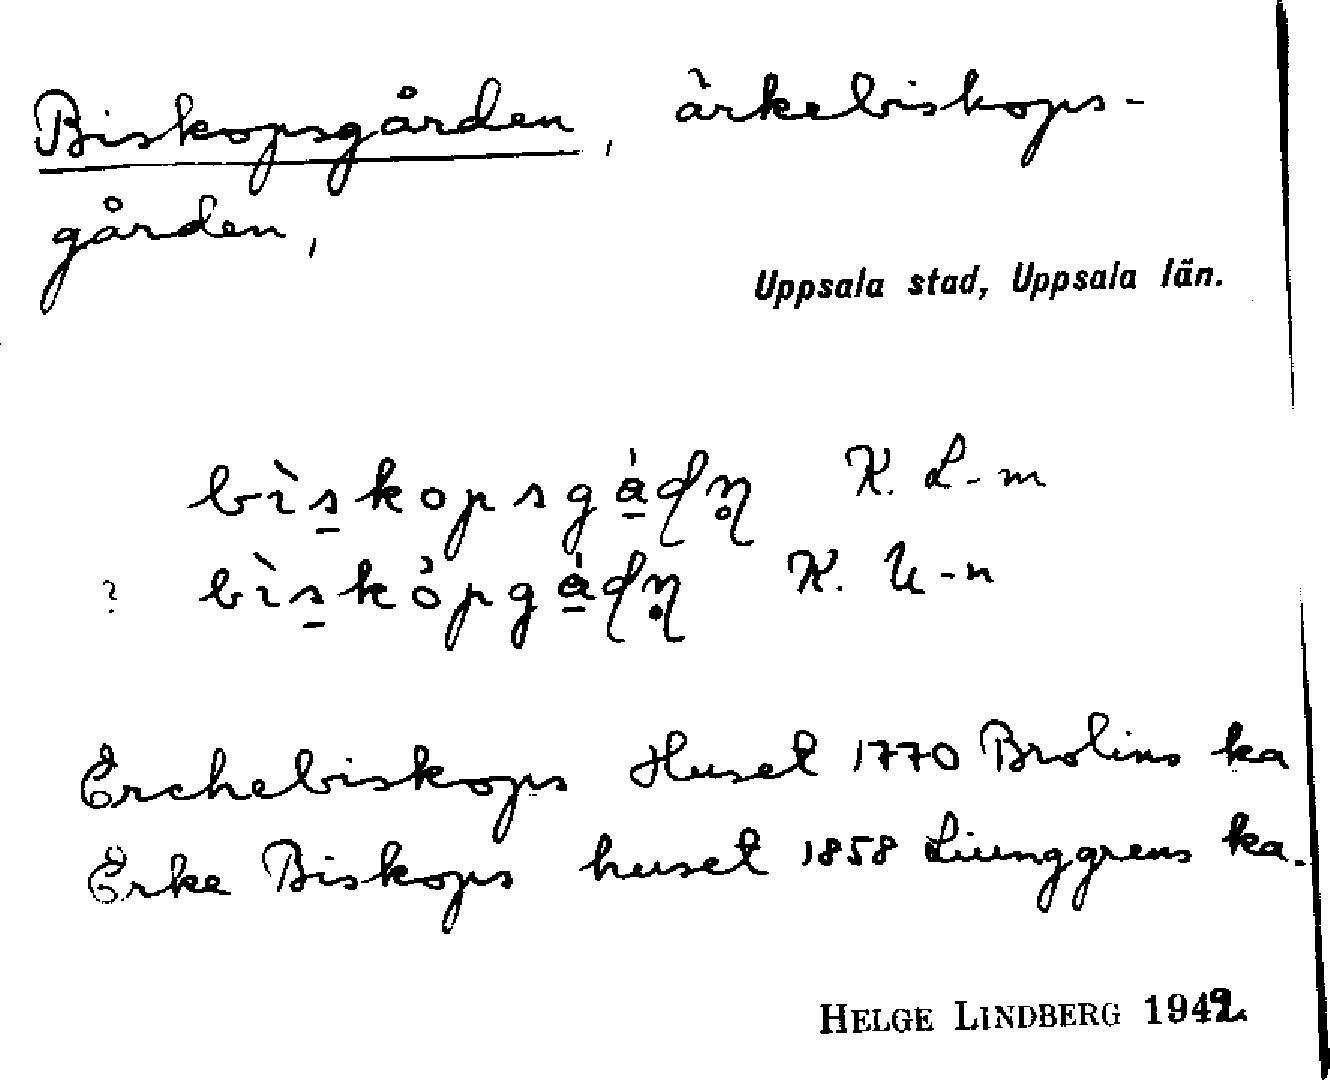 Biskopsgården, ärkebiskops-
gården,
Uppsala stad, Uppsala län.
bìs̱kopsgá̱ḍṇ̥ K. L-m
? bìs̱kòpgá̱ḍṇ̥ K. U-n
Erchebiskops Huset 1770 Brolins ka
Erke Biskops huset 1858 Liunggrens ka.
HELGE LINDBERG 1942